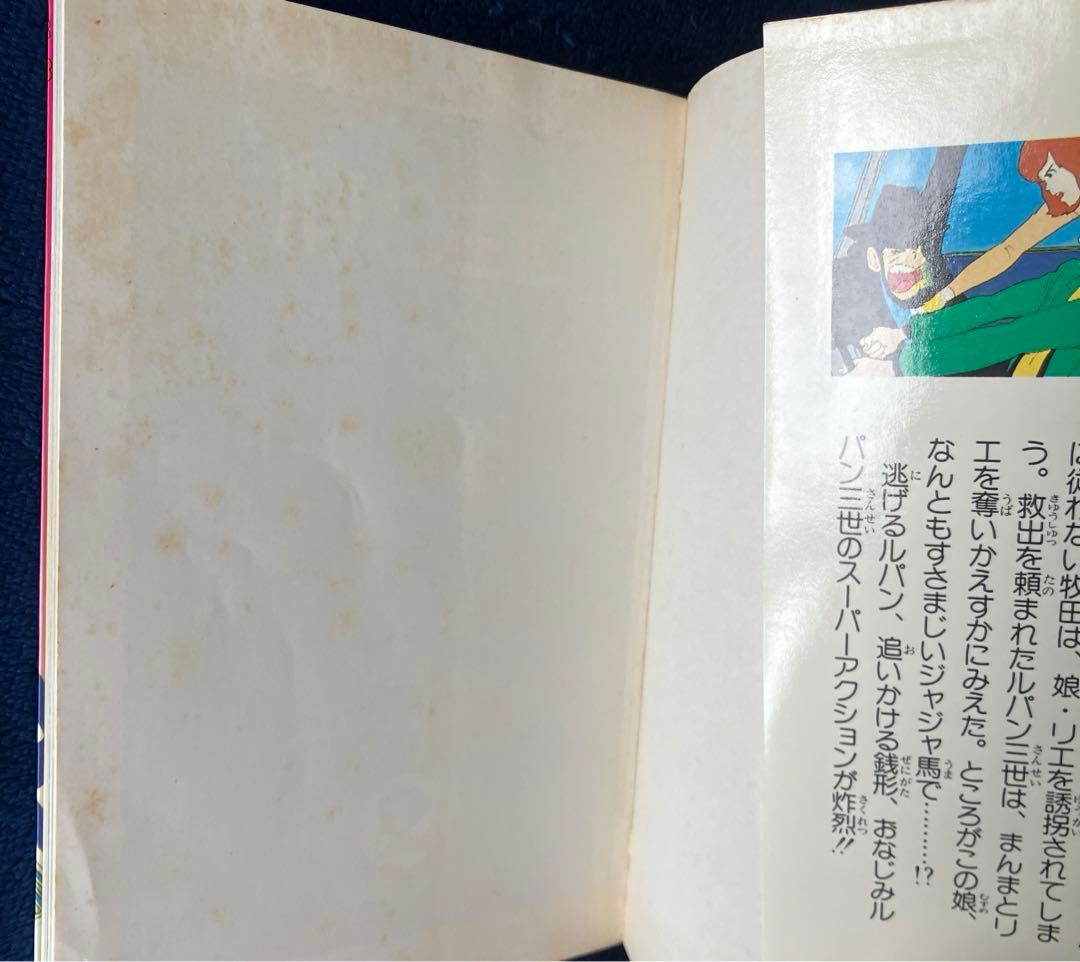 は従わない牧田は、娘・リエを誘拐されてしま
う。救出を頼まれたルパン三世は、まんまとリ
エを奪いかえすかにみえた。ところがこの娘、
なんともすさまじいジャジャ馬で………!?
逃げるルパン、追いかける銭形、おなじみル
パン三世のスーパーアクションが炸烈!!